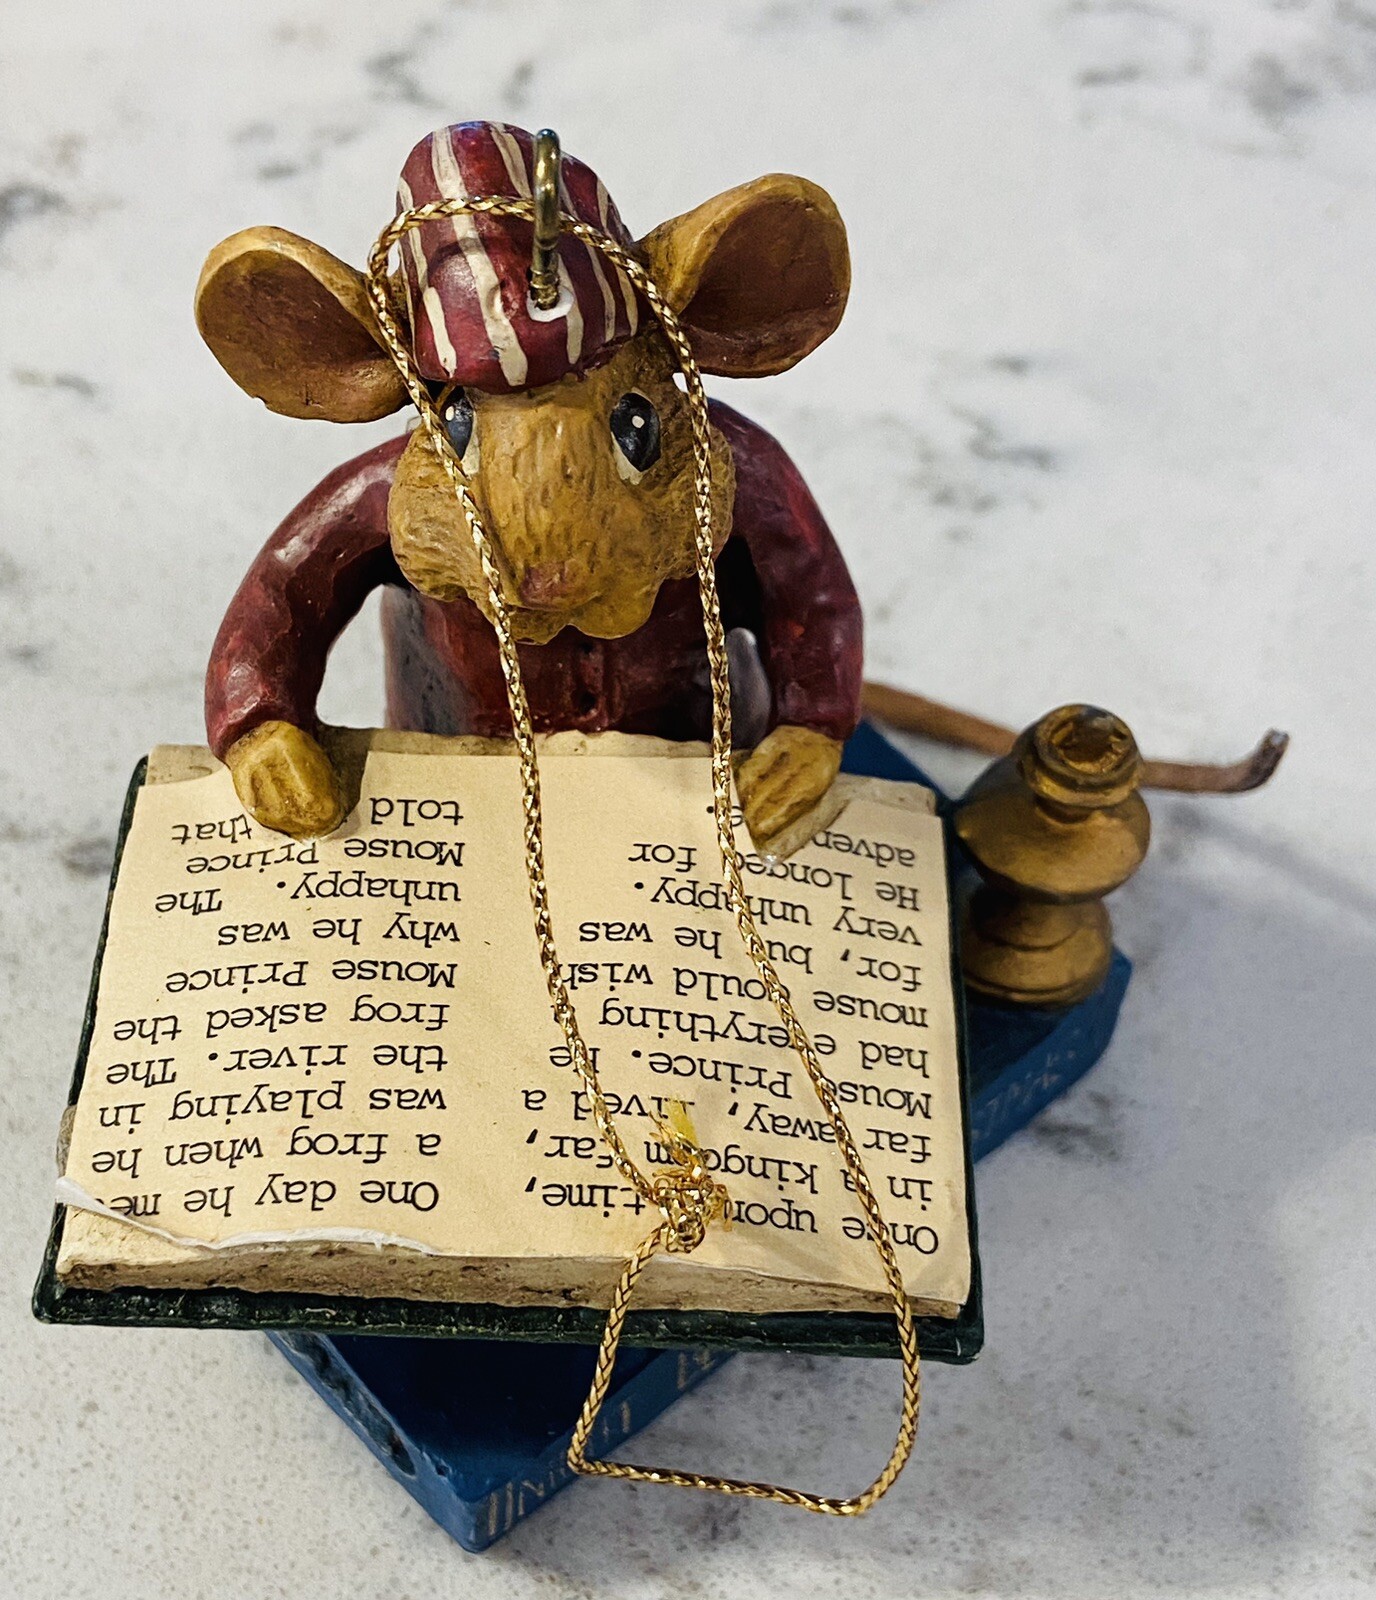 Once upon time,
in a kingdom far,
far away, lived a
Mouse Prince. He
had everything a
mouse could wish
for, but he was
very unhappy.
He longed for
adven
One day he me
a frog when he
was playing in
the river. The
frog asked the
Mouse Prince
why he was
unhappy. The
Mouse Prince
told that